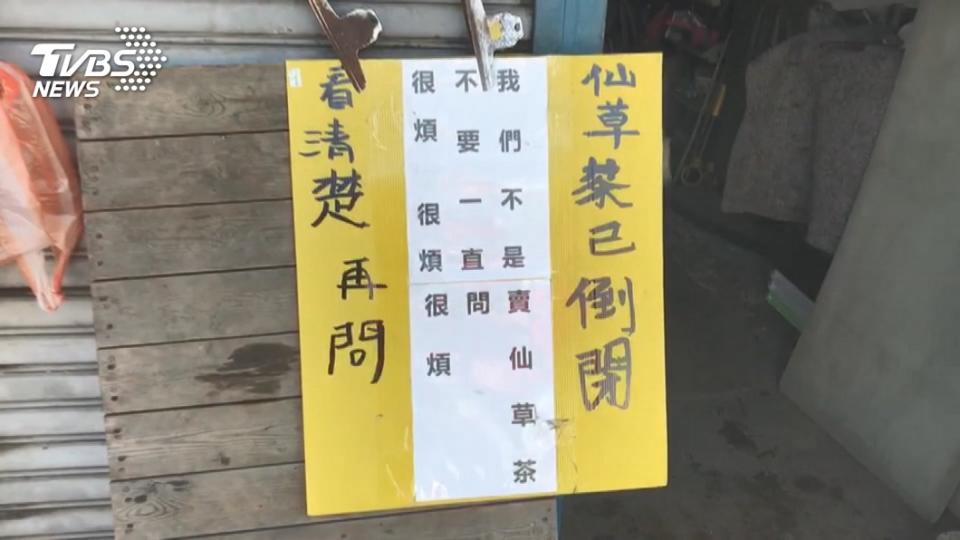 TVBS
NEWS
仙草茶已倒閉
我們不是賣仙草茶
不要一直問
很煩 很煩 很煩
看清楚 再問